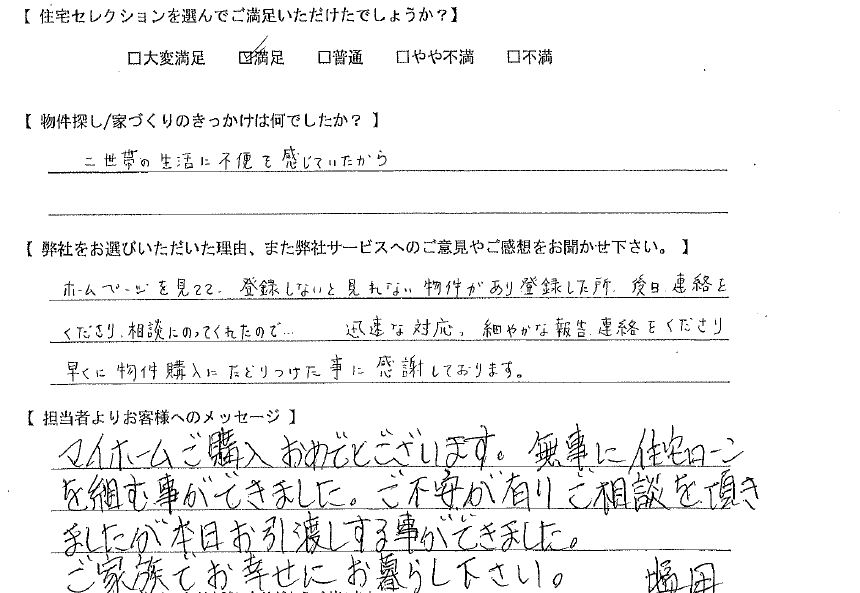 【 住宅セレクションを選んでご満足いただけたでしょうか?】
□大変満足 ☑満足 □普通 □やや不満 □不満
【 物件探し/家づくりのきっかけは何でしたか? 】
二世帯の生活に不便を感じていたから
【 弊社をお選びいただいた理由、また弊社サービスへのご意見やご感想をお聞かせ下さい。 】
ホームページを見てて、登録しないと見れない物件があり登録した所、後日、連絡を
くださり、相談にのってくれたので… 迅速な対応。細やかな報告、連絡をくださり
早くに物件購入にたどりつけた事に感謝しております。
【 担当者よりお客様へのメッセージ 】
マイホームご購入おめでとございます。無事に住宅ローン
を組む事ができました。ご不安が有りご相談を頂き
ましたが本日お引渡しする事ができました。
ご家族でお幸せにお暮らし下さい。